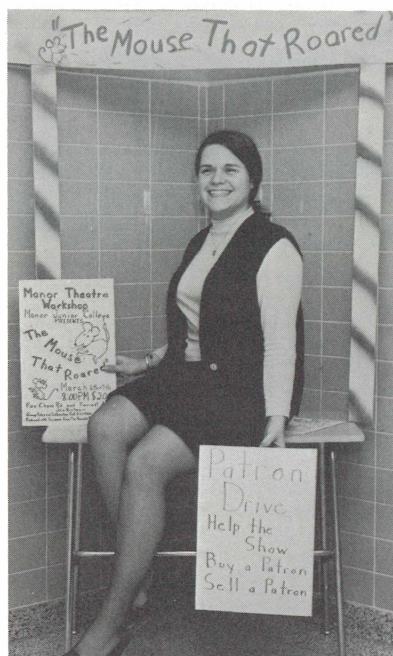 "The Mouse That Roared"
Manor Theatre
Workshop
Manor Junior College
PRESENTS
The
Mouse
That
Roared
8:00PM
Patron
Drive
Help the
Show
Buy a Patron
Sell a Patron